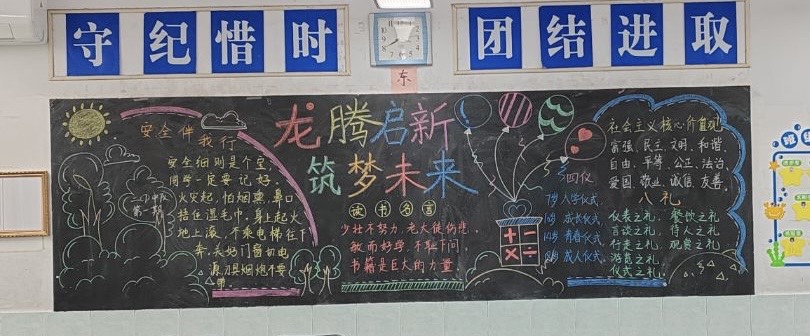 守纪惜时
团结进取
东
龙腾启新
筑梦未来
安全伴我行
安全细则是个宝，
同学一定要记好。
火灾起，怕烟熏，鼻口
捂住湿毛巾，身上起火
地上滚，不乘电梯往下
奔，关好门窗切电
源，刀具烟炮不要
带。
二(7)中队
第一期
读书名言
少壮不努力，老大徒伤悲。
敏而好学，不耻下问，
书籍是巨大的力量。
四仪
7岁 入学仪式
10岁 成长仪式
14岁 青春仪式
18岁 成人仪式
+ −
× ÷
社会主义核心价值观
富强、民主、文明、和谐
自由、平等、公正、法治
爱国、敬业、诚信、友善
八礼
仪表之礼，餐饮之礼
言谈之礼，待人之礼
行走之礼，观赏之礼
游览之礼
仪式之礼